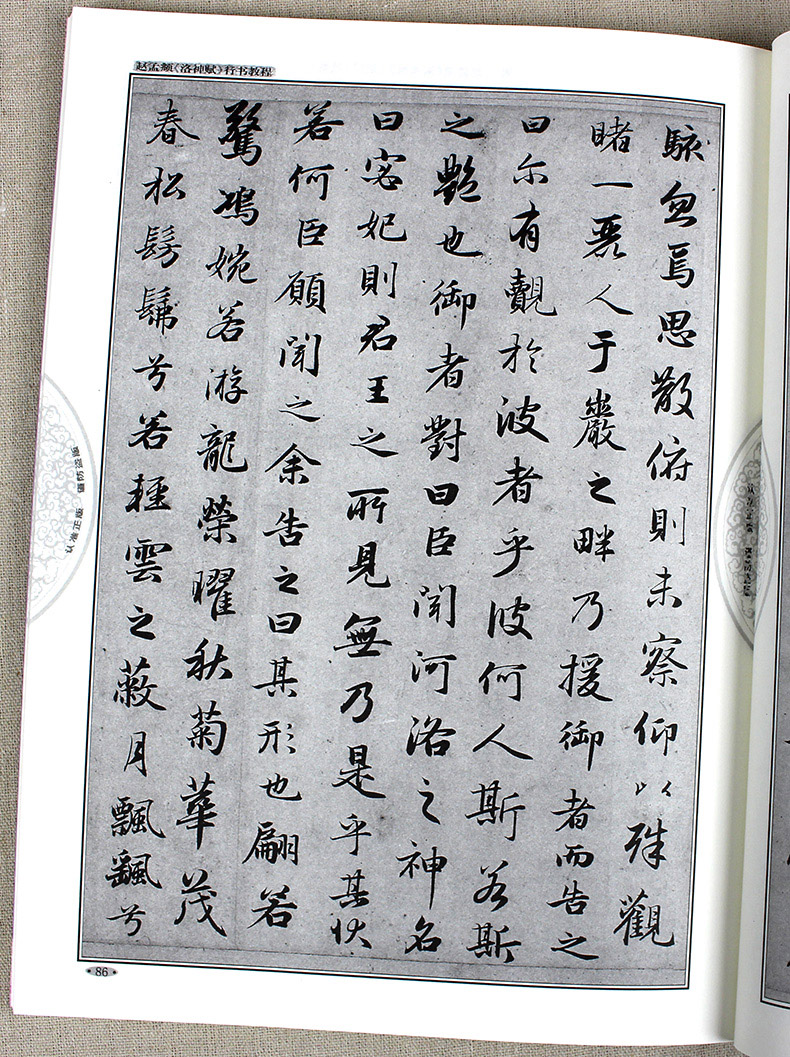 赵孟頫《洛神赋》行书教程
駭忽焉思散俯則未察仰以殊觀
睹一麗人于巖之畔乃援御者而告之
曰尓有覿於彼者乎彼何人斯若斯
之艷也御者對曰臣聞河洛之神名
曰宓妃則君王之所見無乃是乎其狀
若何臣願聞之余告之曰其形也翩若
驚鴻婉若游龍榮曜秋菊華茂
春松髣髴兮若輕雲之蔽月飄飖兮
86
认准正版 谨防盗版
认准正版 谨防盗版